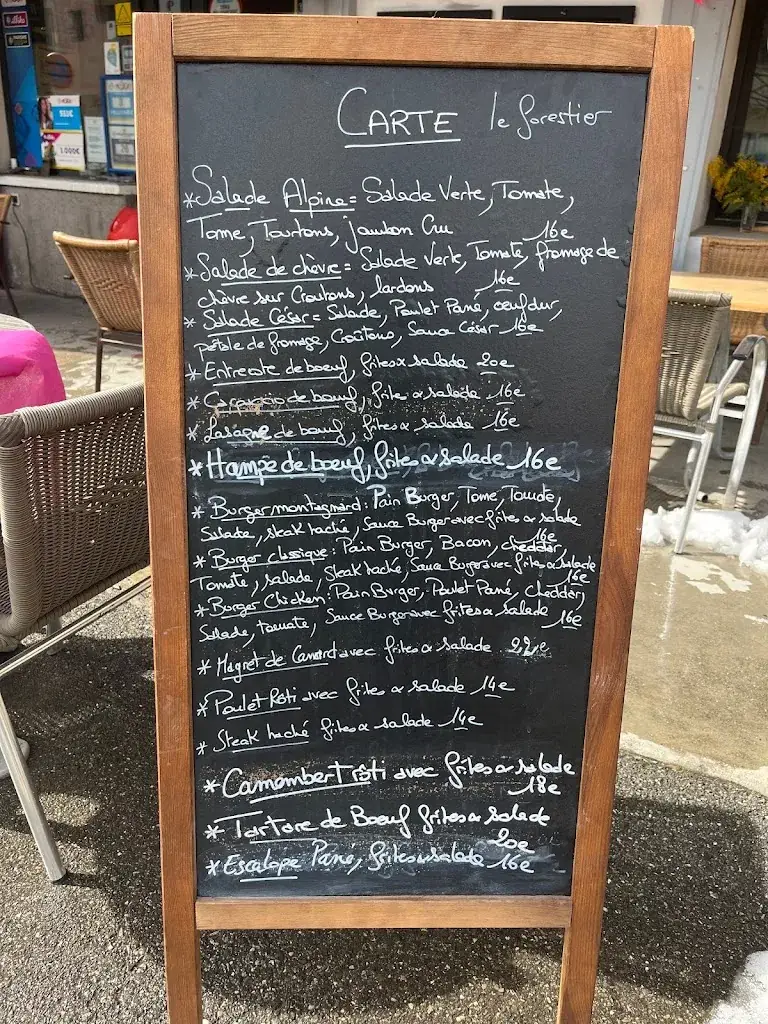 CARTE le forestier
*Salade Alpine = Salade Verte, Tomate,
Tome, Toutons, jambon Cru 16e
*Salade de chèvre = Salade Verte, Tomate, fromage de
chèvre sur Croutons, lardons 16e
* Salade César = Salade, Poulet Pané, oeuf dur,
pétale de fromage, Croûtons, Sauce César 16e
* Entrecote de boeuf, frites & salade 20e
* Carpaccio de boeuf, frites & salade 16e
* Lasagne de boeuf, frites & salade 16e
* Hampe de boeuf, frites & salade 16e
* Burger montagnard : Pain Burger, Tome, Tomate,
Salade, steak haché, Sauce Burger avec frites & salade
16e
* Burger classique : Pain Burger, Bacon, cheddar,
Tomate, salade, Steak haché, Sauce Burger avec frites & salade
16e
* Burger Chicken : Pain Burger, Poulet Pané, Cheddar,
Salade, tomate, Sauce Burger avec frites & salade 16e
* Magret de Canard avec frites & salade 22e
* Poulet Rôti avec frites & salade 14e
* Steak haché frites & salade 14e
* Camembert rôti avec frites & salade
18e
* Tartare de Boeuf frites & salade
20e
* Escalope Pané, frites & salade 16e
1000€